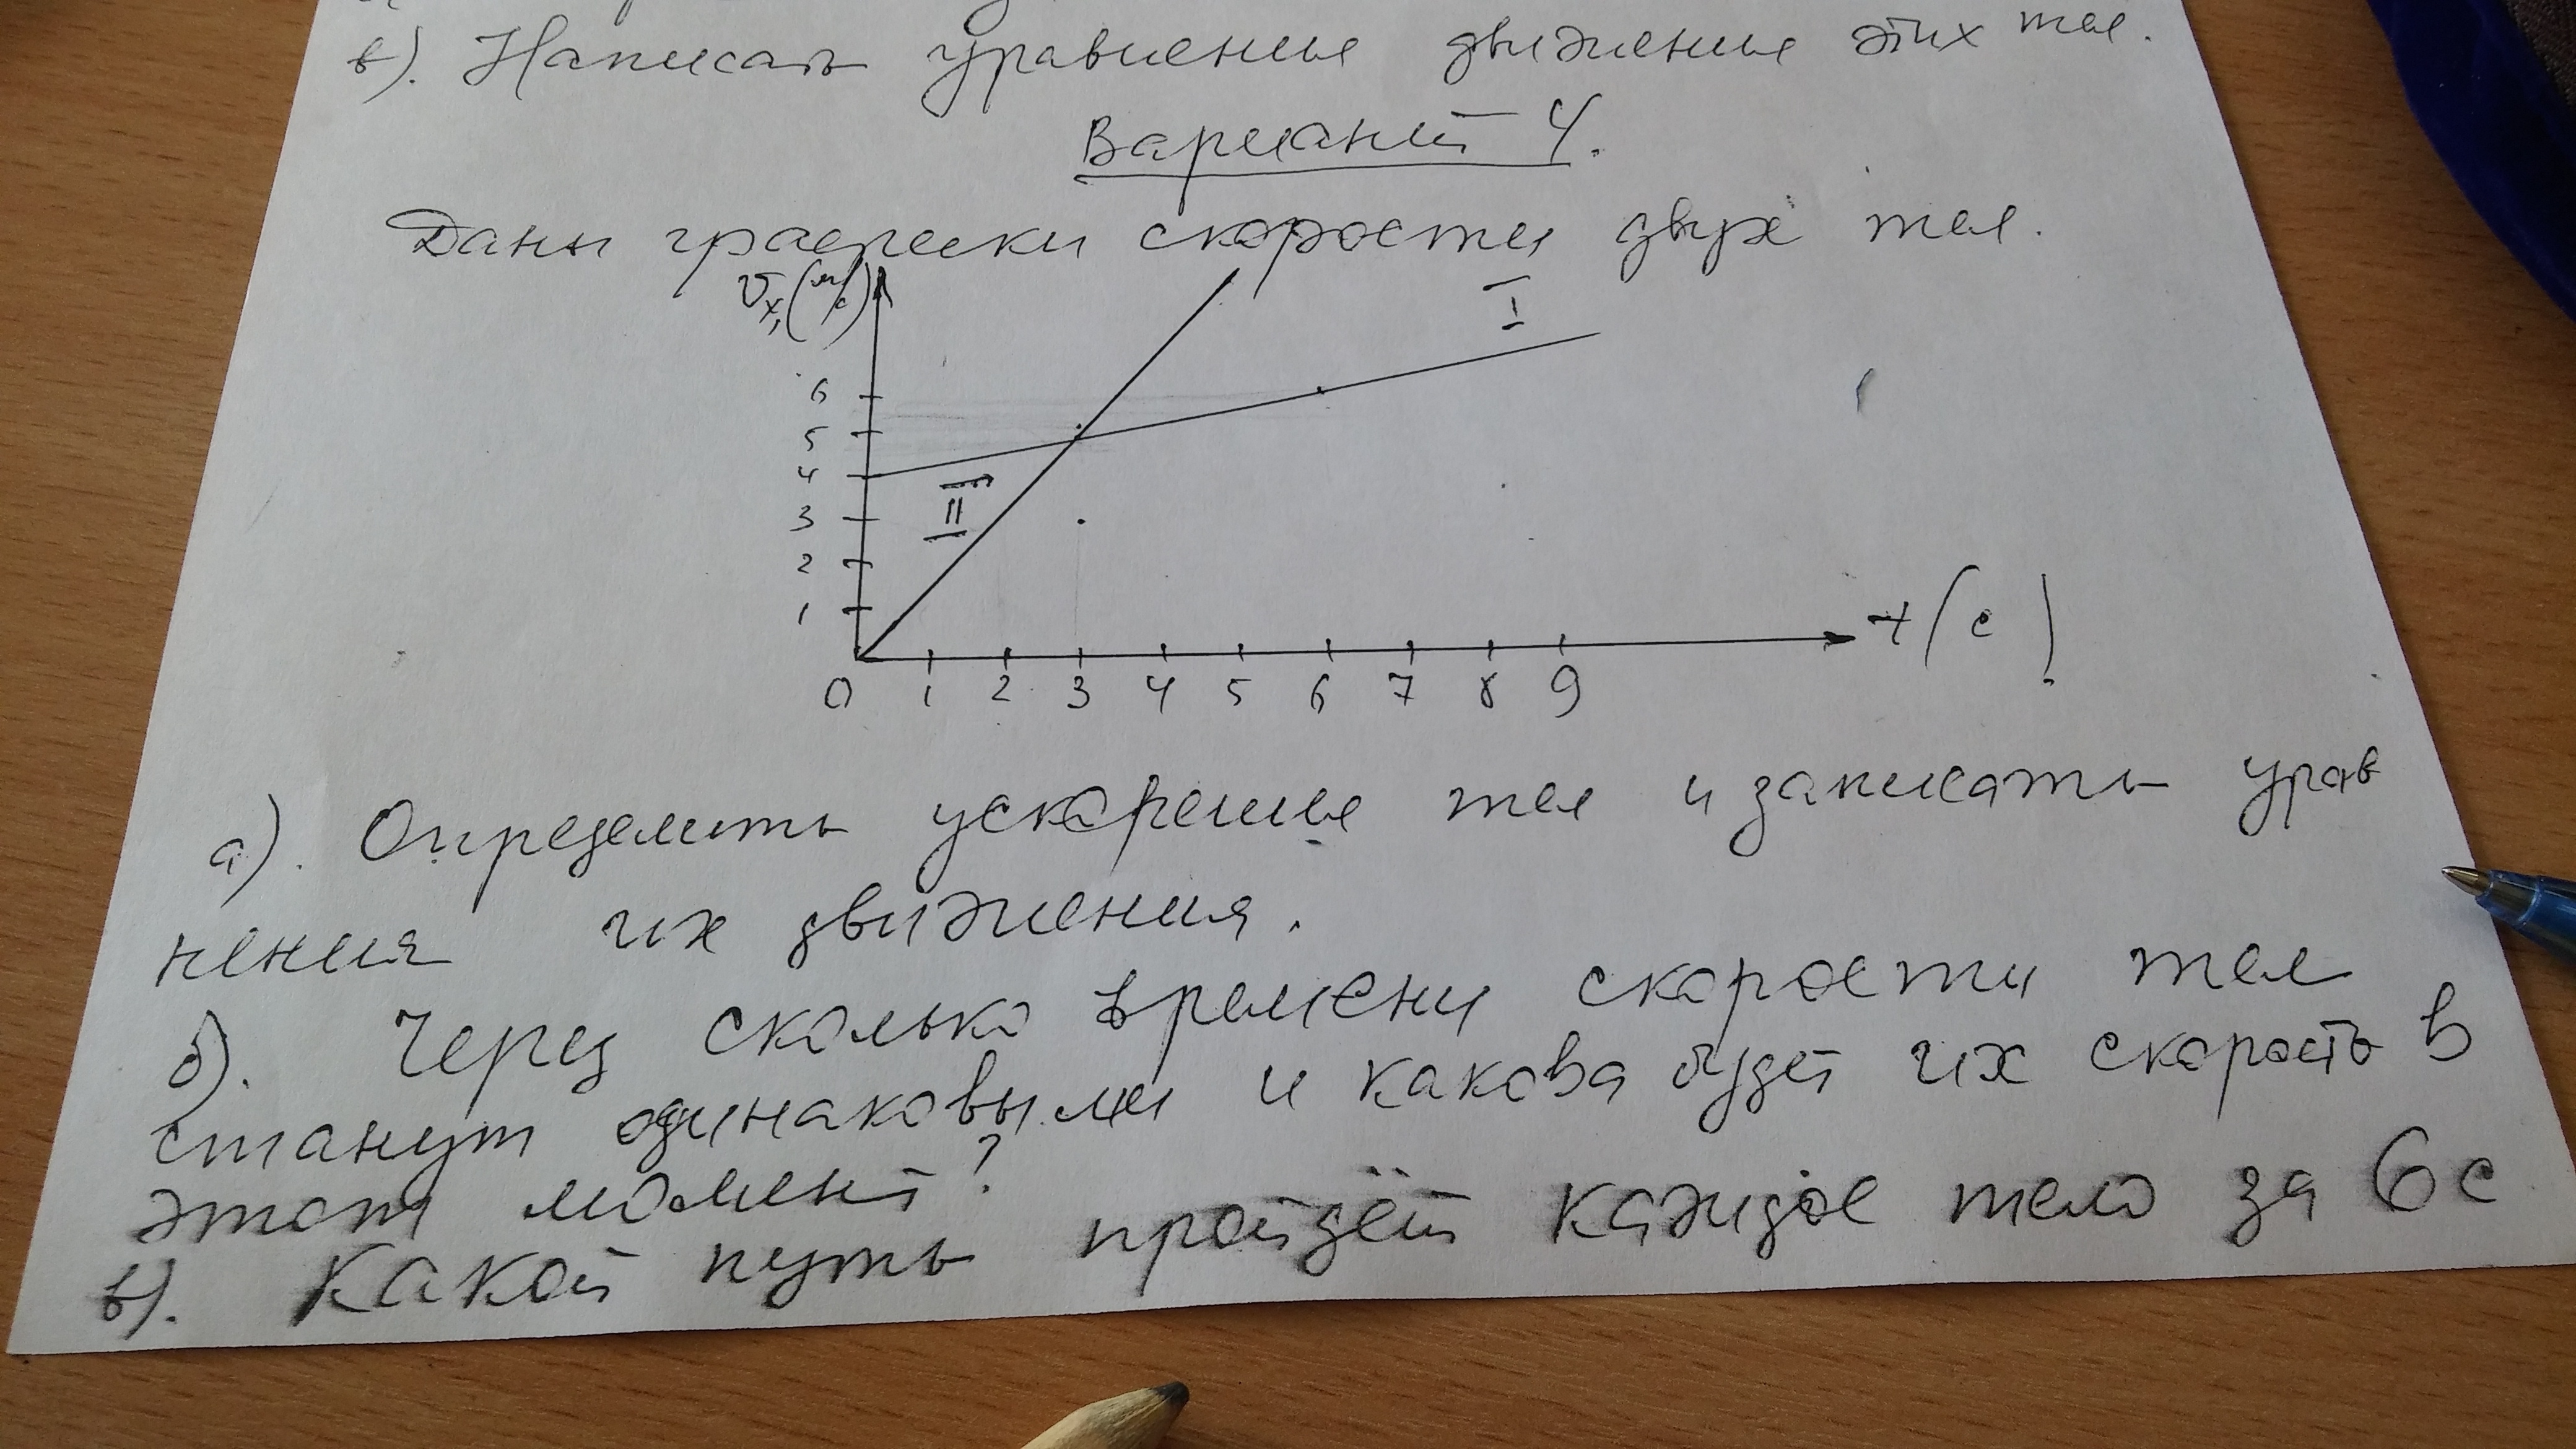 в). Написать уравнение движения этих тел.
Вариант 4.
Даны графики скорости двух тел.
υx,(м/с)
I
6
5
4
II
3
2
1
t(с)
0 1 2 3 4 5 6 7 8 9
а). Определить ускорение тел и записать урав
нения их движения.
б). Через сколько времени скорости тел
станут одинаковыми и какова будет их скорость в
этот момент?
в). Какой путь пройдёт каждое тело за 6 с